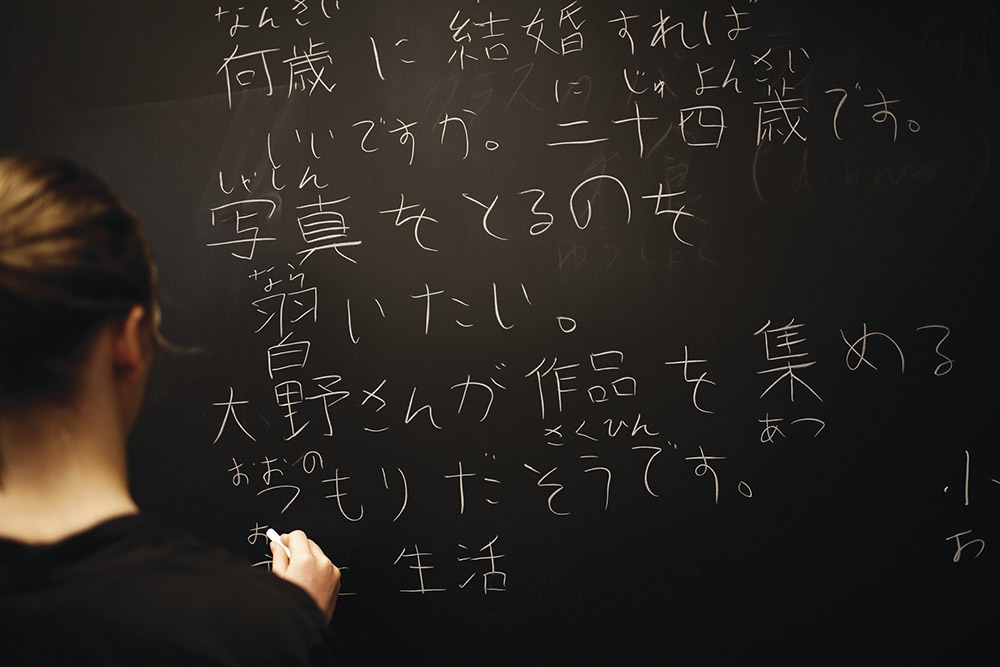 なんさい
何歳に結婚すれば
に じゅ よん さい
いいですか。二十四歳です。
しゃしん
写真をとるのを
なら
習いたい。
大野さんが作品を集める
さくひん あつ
おおの
つもりだそうです。
お
生活